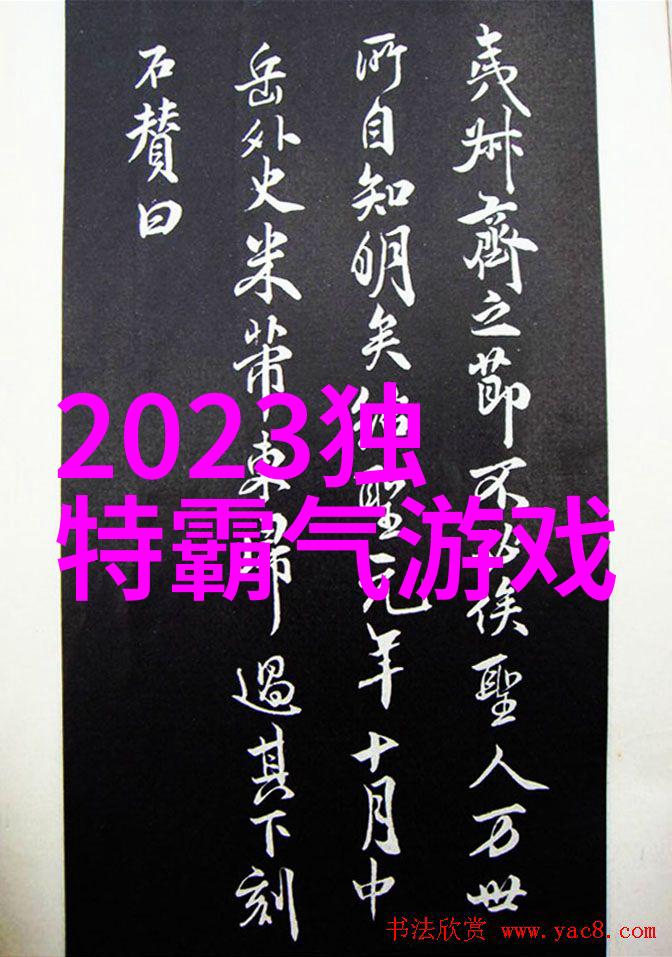 夷叔齊之節不必俟聖人万世
所自知明矣紹聖元年十月中
岳外史米芾東歸過其下刻
石賛曰
2023独
特霸气游戏
书法欣赏 www.yac8.com